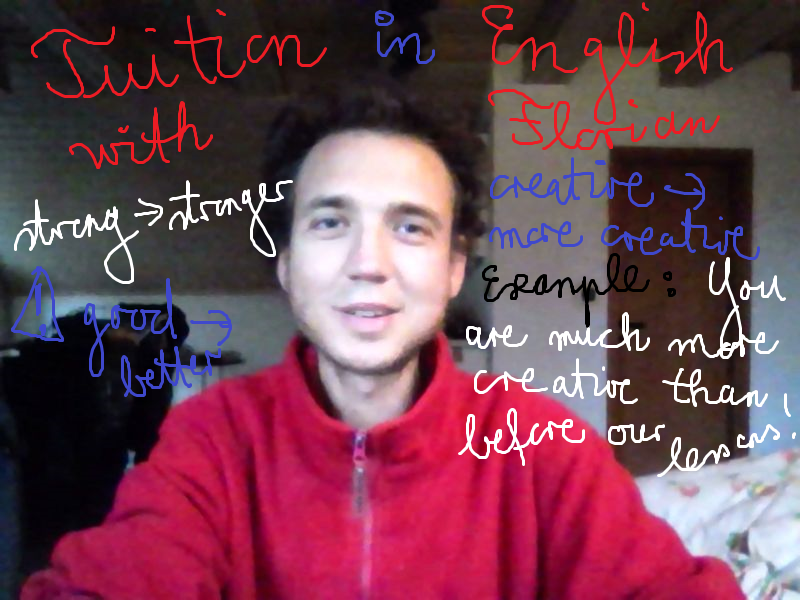 Tuition in English
with Florian
strong → stronger
⚠ good →
better
creative →
more creative
Example: You
are much more
creative than
before our lessons!